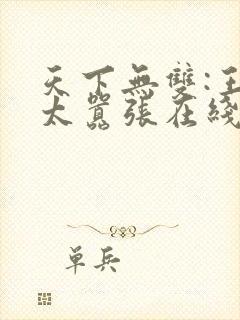 天下無雙:王
太囂張在綫
單兵